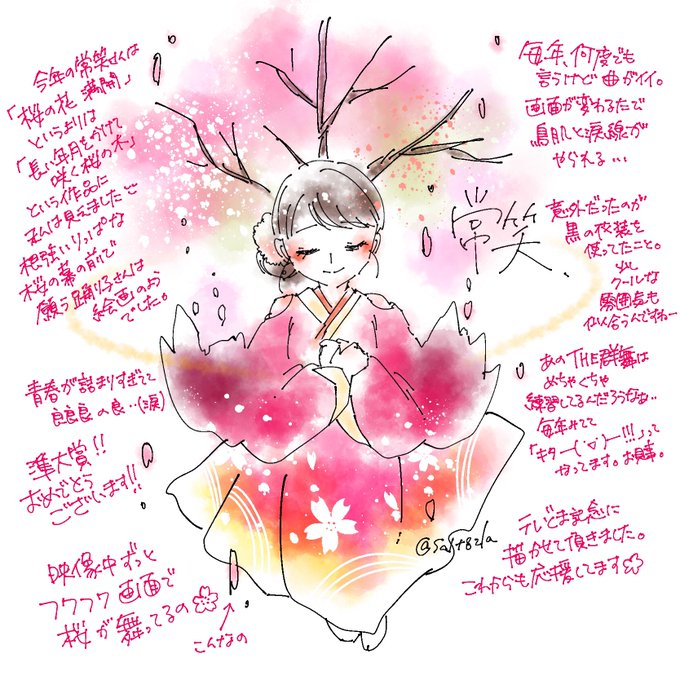 今年の常笑さんは
「桜の花 満開」
というよりは
「長い年月をかけて
咲く桜の木」
という作品に
私は見えました
根強いりっぱな
桜の幕の前で
願う踊り子さんは
絵画のよう
でした。
青春が詰まりすぎて
良良良の良…(涙)
準大賞!!
おめでとう
ございます!!
映像中ずっと
フワフワ画面で
桜が舞ってるの
こんなの
毎年、何度でも
言うけど曲がイイ。
画面が変わるたで
鳥肌と涙線が
やられる…
常笑、
意外だったのが
黒の衣装を
使ってたこと。
少し
クールな
雰囲気も
似合うんですねー
あのTHE群舞は
めちゃくちゃ
練習してるんだろうなぁ..
毎年みてて
「キター('▽')ー!!!」って
なってます。お見事。
テレどま記念に
描かせて頂きました。
これからも応援してます